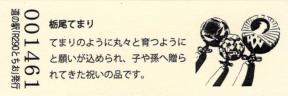 栃尾てまり
てまりのように丸々と育つように
と願いが込められ、子や孫へ贈ら
れてきた祝いの品です。
001461
道の駅(R290とちお)発行